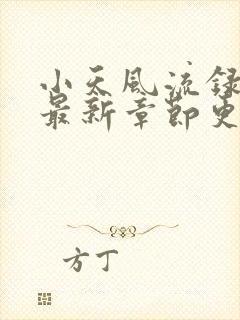 小天风流录
最新章节更
方丁